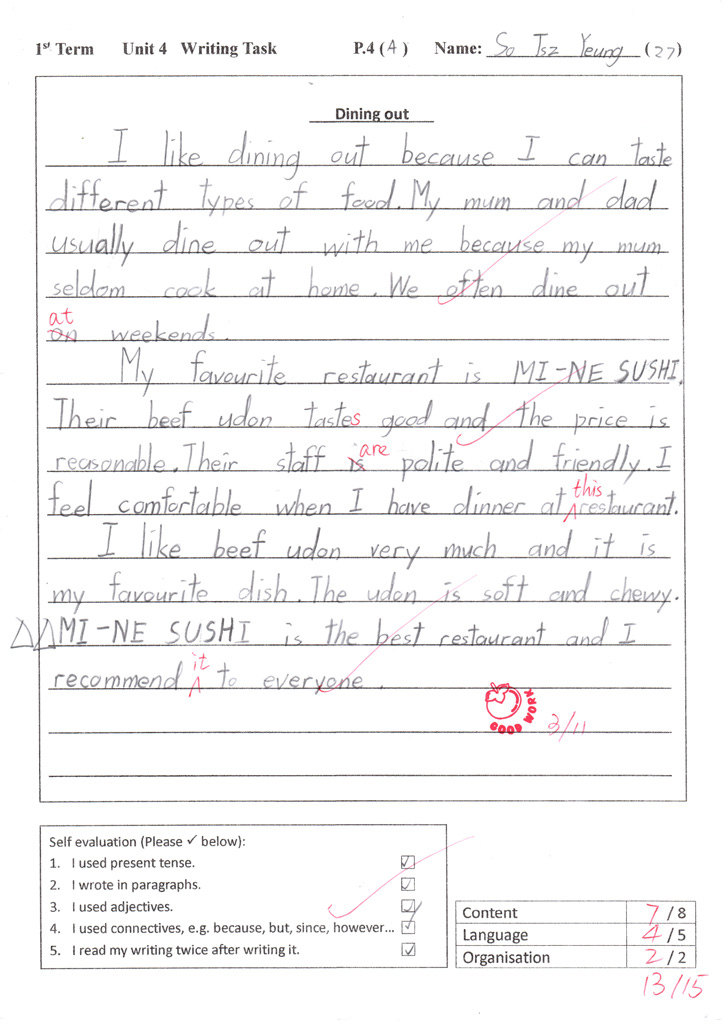 1st Term Unit 4 Writing Task P.4 (4) Name: So Tsz Yeung (27)
Dining out
I like dining out because I can taste
different types of food. My mum and dad
usually dine out with me because my mum
seldom cook at home. We often dine out
at
on weekends.
My favourite restaurant is MI-NE SUSHI.
Their beef udon tastes good and the price is
reasonable. Their staff is are polite and friendly. I
this
feel comfortable when I have dinner at restaurant.
I like beef udon very much and it is
my favourite dish. The udon is soft and chewy.
MI-NE SUSHI is the best restaurant and I
it
recommend to everyone.
GOOD WORK
3/11
Self evaluation (Please ✓ below):
1. I used present tense. ✓
2. I wrote in paragraphs. ✓
3. I used adjectives. ✓
4. I used connectives, e.g. because, but, since, however... ✓
5. I read my writing twice after writing it. ✓
Content 7 / 8
Language 4 / 5
Organisation 2 / 2
13/15